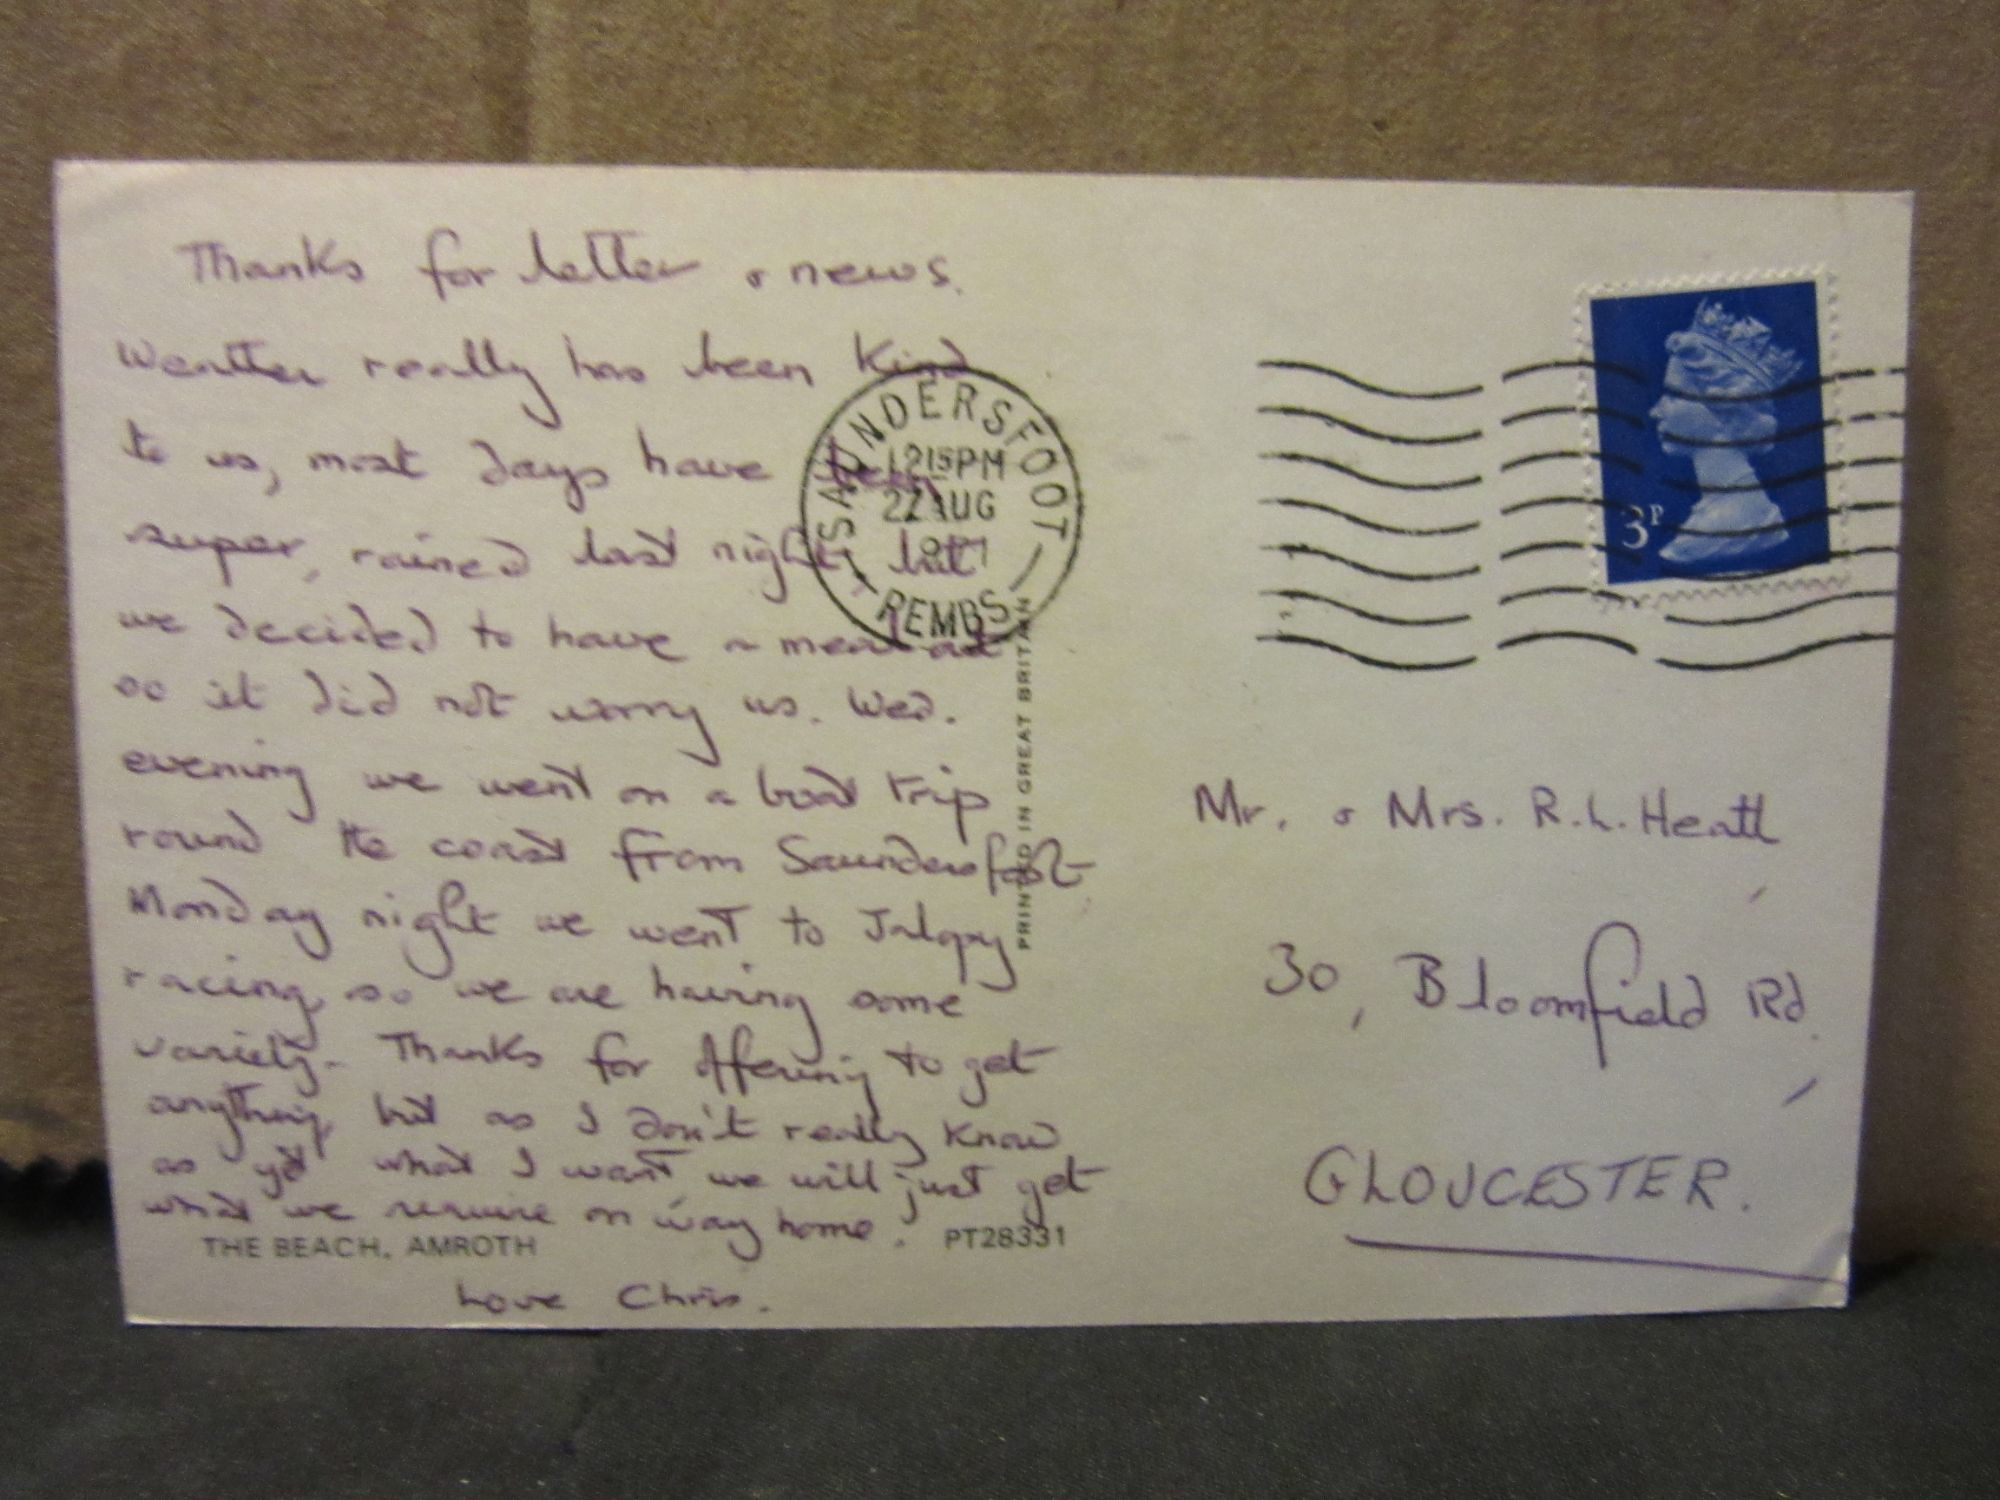 Thanks for letter & news.
Weather really has been kind
to us, most days have been
super, rained last night, but
we decided to have a meal out
so it did not worry us. Wed.
evening we went on a boat trip
round the coast from Saundersfoot
Monday night we went to Jalopy
racing, so we are having some
variety. Thanks for offering to get
anything, but as I don't really know
as yet what I want, we will just get
what we require on way home.
THE BEACH, AMROTH PT28331
Love Chris.
PRINTED IN GREAT BRITAIN
SAUNDERSFOOT
1215PM
22 AUG
PEMBS
3P
Mr. & Mrs. R.L. Heath,
30, Bloomfield Rd.,
GLOUCESTER.